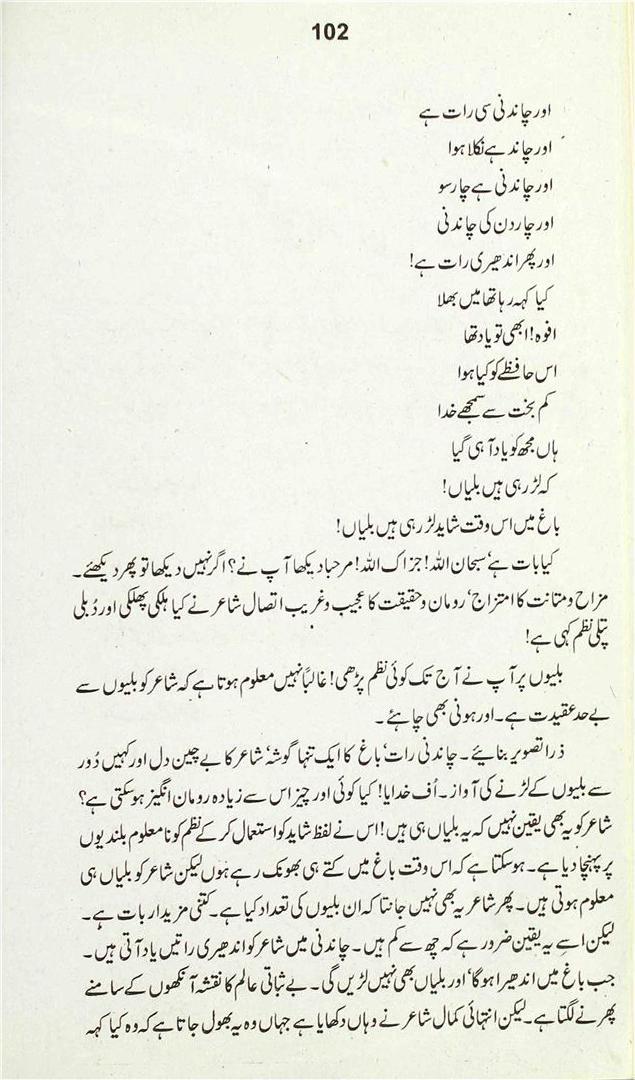 102
اور چاندنی سی رات ہے
اور چاند ہے نکلا ہوا
اور چاندنی ہے چارسو
اور چار دن کی چاندنی
اور پھر اندھیری رات ہے!
کیا کہہ رہا تھا میں بھلا
افوہ! ابھی تو یاد تھا
اس حافظے کو کیا ہوا
کم بخت سے سمجھے خدا
ہاں مجھ کو یاد آ ہی گیا
کہ لڑ رہی ہیں بلیاں!
باغ میں اس وقت شاید لڑ رہی ہیں بلیاں!
کیا بات ہے‘ سبحان اللہ! جزاک اللہ! مرحبا دیکھا آپ نے؟ اگر نہیں دیکھا تو پھر دیکھئے۔
مزاح و متانت کا امتزاج‘ رومان و حقیقت کا عجیب و غریب اتصال شاعر نے کیا ہلکی پھلکی اور دُبلی
پتلی نظم کہی ہے!
بلیوں پر آپ نے آج تک کوئی نظم پڑھی! غالباً نہیں معلوم ہوتا ہے کہ شاعر کو بلیوں سے
بے حد عقیدت ہے۔ اور ہونی بھی چاہئے۔
ذرا تصویر بنائیے۔ چاندنی رات‘ باغ کا ایک تنہا گوشہ‘ شاعر کا بے چین دل اور کہیں دُور
سے بلیوں کے لڑنے کی آواز۔ اُف خدایا! کیا کوئی اور چیز اس سے زیادہ رومان انگیز ہو سکتی ہے؟
شاعر کو یہ بھی یقین نہیں کہ یہ بلیاں ہی ہیں! اس نے لفظ شاید کو استعمال کر کے نظم کو نا معلوم بلندیوں
پر پہنچا دیا ہے۔ ہو سکتا ہے کہ اس وقت باغ میں کتے ہی بھونک رہے ہوں لیکن شاعر کو بلیاں ہی
معلوم ہوتی ہیں۔ پھر شاعر یہ بھی نہیں جانتا کہ ان بلیوں کی تعداد کیا ہے۔ کتنی مزیدار بات ہے۔
لیکن اسے یہ یقین ضرور ہے کہ چھ سے کم ہیں۔ چاندنی میں شاعر کو اندھیری راتیں یاد آتی ہیں۔
جب باغ میں اندھیرا ہوگا‘ اور بلیاں بھی نہیں لڑیں گی۔ بے ثباتی عالم کا نقشہ آنکھوں کے سامنے
پھرنے لگتا ہے۔ لیکن انتہائی کمال شاعر نے وہاں دکھایا ہے جہاں وہ یہ بھول جاتا ہے کہ وہ کیا کہہ